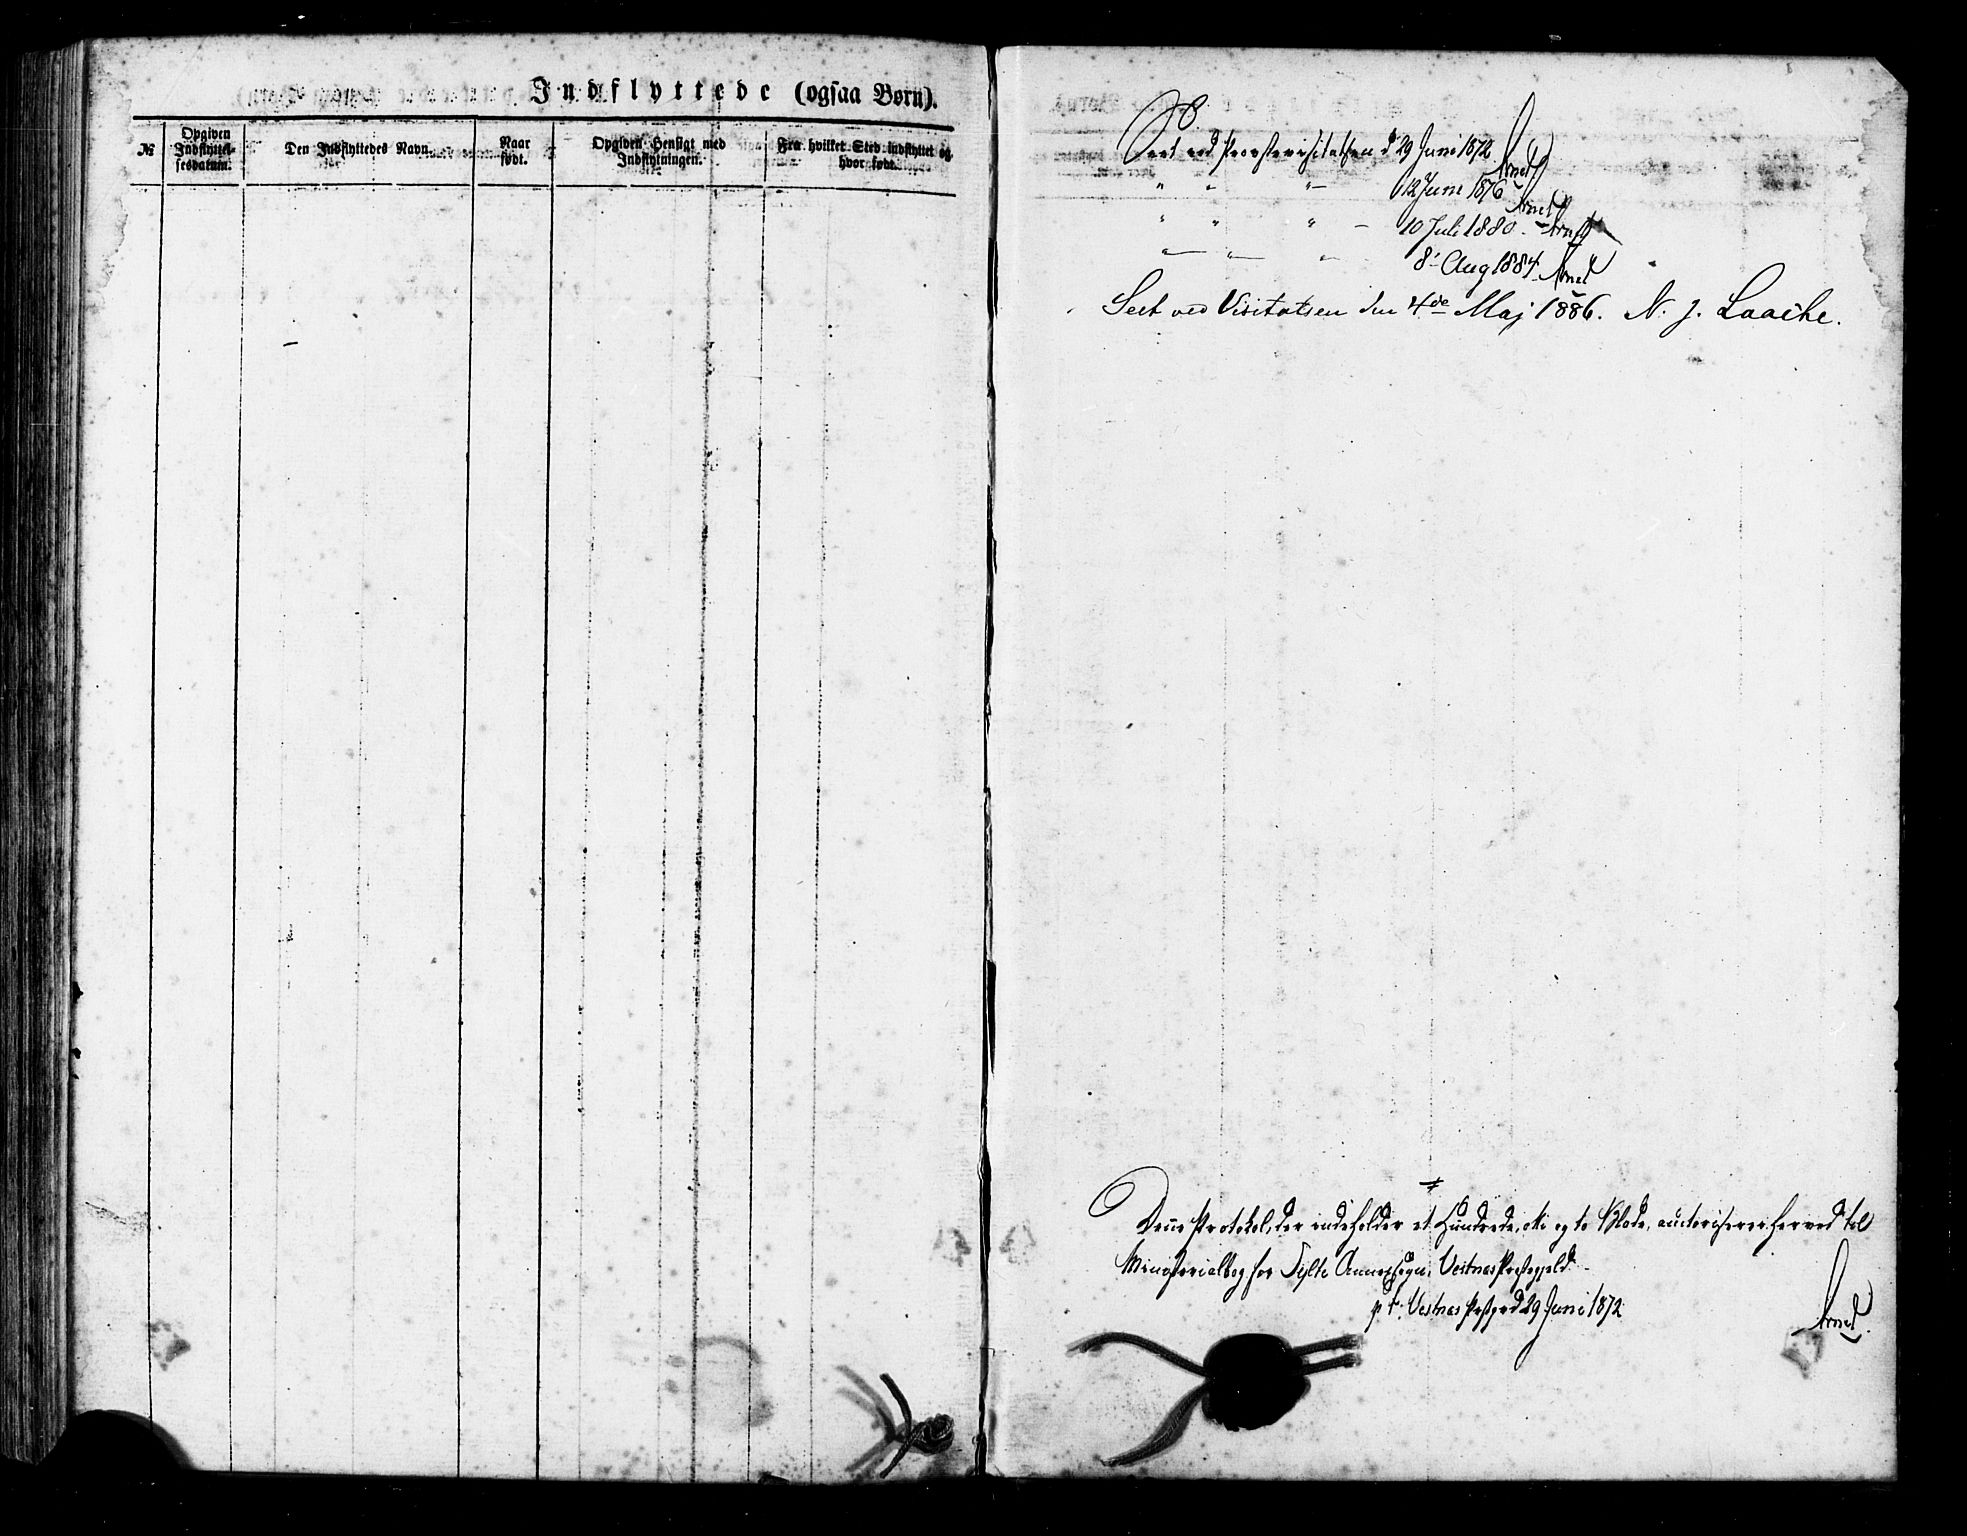 Indflyttede (ogsaa Børn).
№
Opgiven Indflyttel-sesdatum.
Den Indflyttedes Navn.
Naar født.
Opgiven Hensigt med Indflytningen.
Fra hvilket Sted indflyttet og hvor født.
Seet ved Provstevisitatsen d 29 Juni 1872
" " "— 12 Juni 1876
" " " — 10 Juli 1880.
"— "— "— 8' Aug 1884.
Seet ved Visitatsen den 4de Maj 1886. N. J. Laache.
Denne Protokol, der indeholder et Hundrede, otti og to Blade, autoriseres herved til
Ministerialbog for Sylte Annexsogn, Vestnes Præstegjeld.
p t. Vestnes Præstgrd 29 Juni 1872